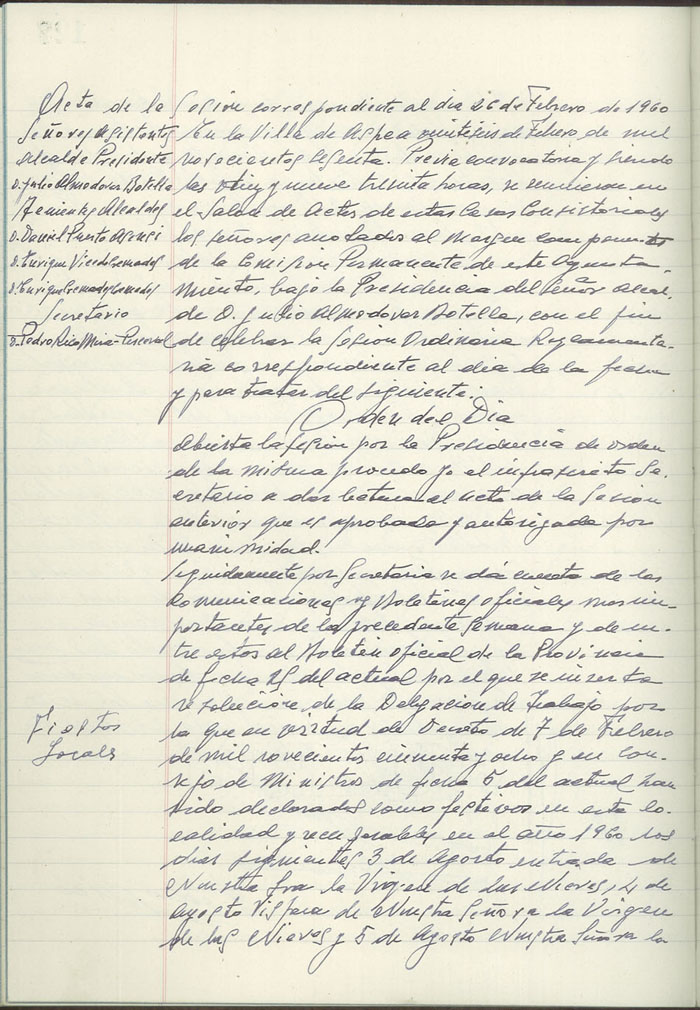 Acta de la Sesion correspondiente al dia 26 de Febrero de 1960
Señores Asistentes
Alcalde Presidente
D. Julio Almodovar Botella
Tenientes Alcaldes
D. Daniel Puerto Asensi
D. Enrique Vicedo Cremades
D. Enrique Cremades Cremades
Secretario
D. Pedro Rico Mira-Perceval
En la Villa de Aspe a veintiseis de Febrero de mil
novecientos sesenta. Previa convocatoria y siendo
las diez y nueve treinta horas, se reunieron en
el Salon de Actos de estas Casas Consistoriales
los señores anotados al margen componentes
de la Comision Permanente de este Ayunta-
miento, bajo la Presidencia del Señor Alcal-
de D. Julio Almodovar Botella, con el fin
de celebrar la Sesion Ordinaria Reglamenta-
ria correspondiente al dia de la fecha
y para tratar del siguiente:
Orden del Dia
Abierta la sesion por la Presidencia de orden
de la misma procedo yo el infrascrito Se-
cretario a dar lectura al acta de la Sesion
anterior que es aprobada y autorizada por
unanimidad.
Seguidamente por Secretaria se dá cuenta de las
comunicaciones y Boletines oficiales mas im-
portantes de la precedente Semana y de en-
tre estos al Boletin oficial de la Provincia
de fecha 25 del actual por el que se inserta
resolución de la Delegacion de Trabajo por
la que en virtud de Decreto de 7 de Febrero
de mil novecientos cincuenta y ocho y en Con-
sejo de Ministros de fecha 5 del actual han
sido declarados como festivos en esta lo-
calidad y recuperables en el año 1960 los
dias siguientes 3 de Agosto entrada de
Nuestra Sra la Virgen de las Nieves, 4 de
Agosto Vispera de Nuestra Señora la Virgen
de las Nieves y 5 de Agosto Nuestra Señora la
Fiestas
Locales